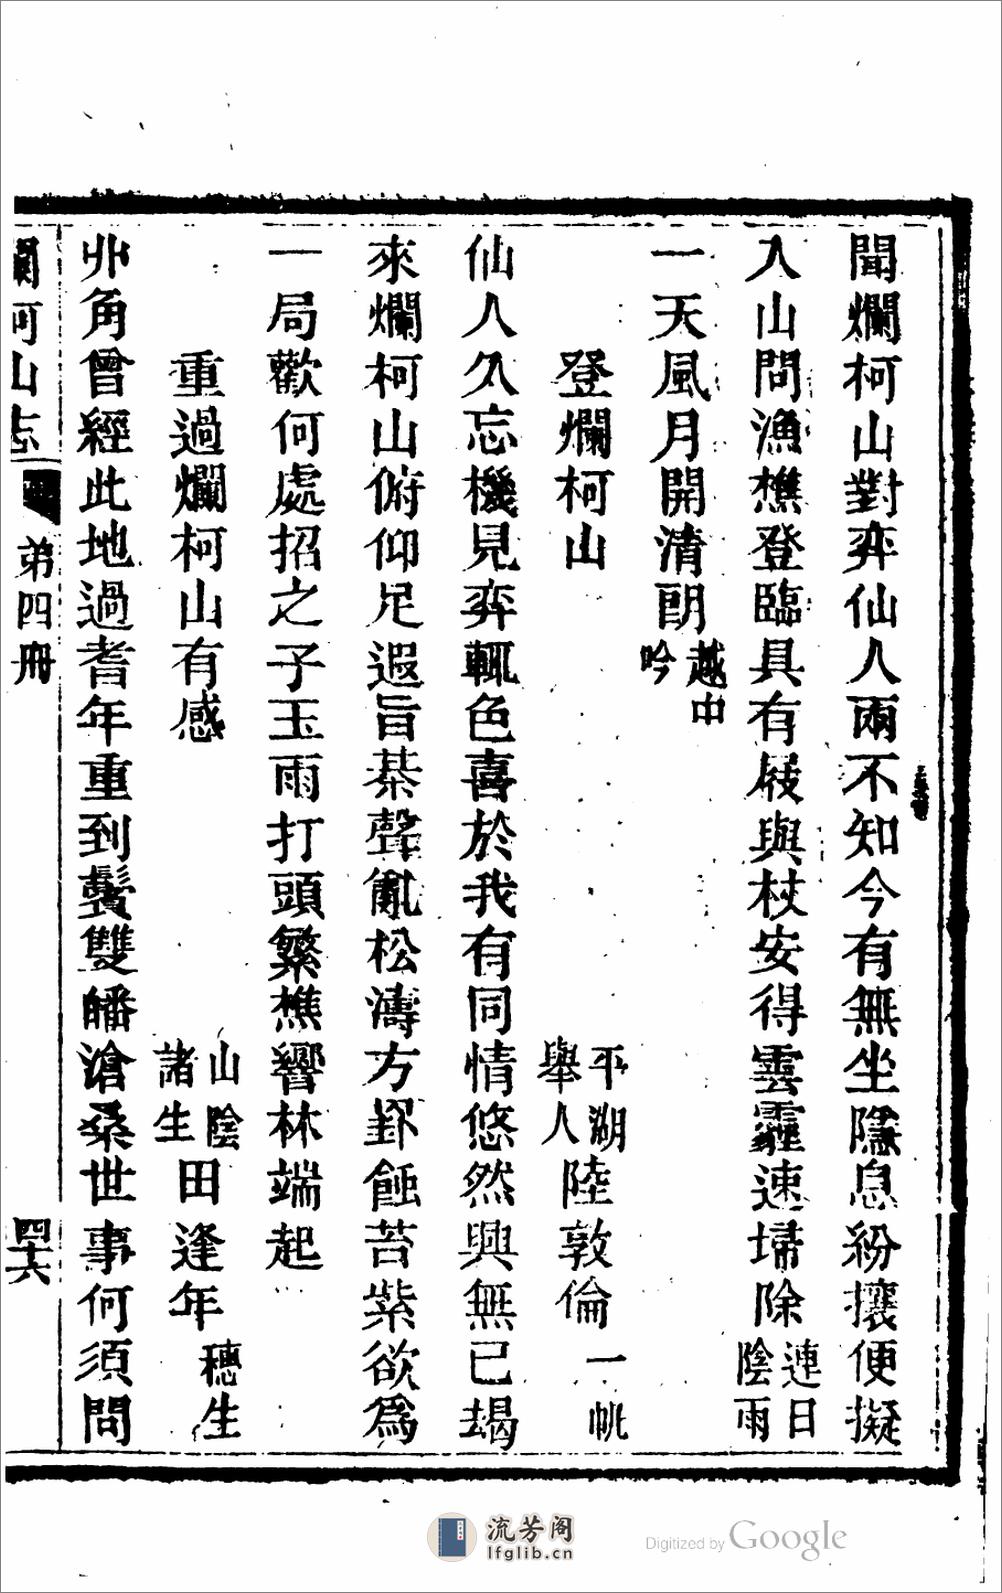 聞爛柯山對弈仙人兩不知今有無坐隱息紛攘便擬
入山問漁樵登臨具有屐與杖安得雲霾速埽除連日陰雨
一天風月開清朗越中吟
登爛柯山 平湖舉人陸敦倫一帆
仙人久忘機見弈輒色喜於我有同情悠然興無已朅
來爛柯山俯仰足遐旨棊聲亂松濤方罫蝕苔紫欲爲
一局歡何處招之子玉雨打頭繁樵響林端起
重過爛柯山有感 山陰諸生田逢年穗生
丱角曾經此地過耆年重到鬢雙皤滄桑世事何須問
爛柯山志 弟四冊 四十六
流芳阁
lfglib.cn
Digitized by Google